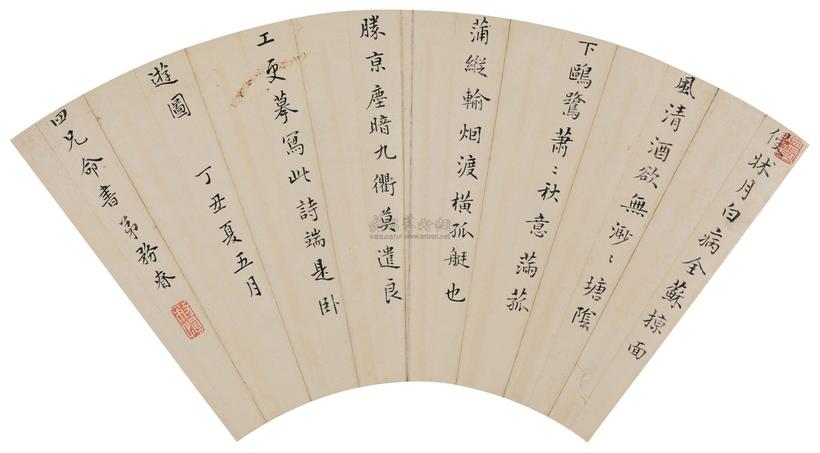 侵牀月白病全蘇掠面
風清酒欲無渺〻塘陰
下鷗鷺蕭〻秋意滿菰
蒲縱輸烟渡橫孤艇也
勝亰塵暗九衢莫遣良
工更摹寫此詩端是卧
遊圖 丁丑夏五月
四兄命書弟務
www.artron.net